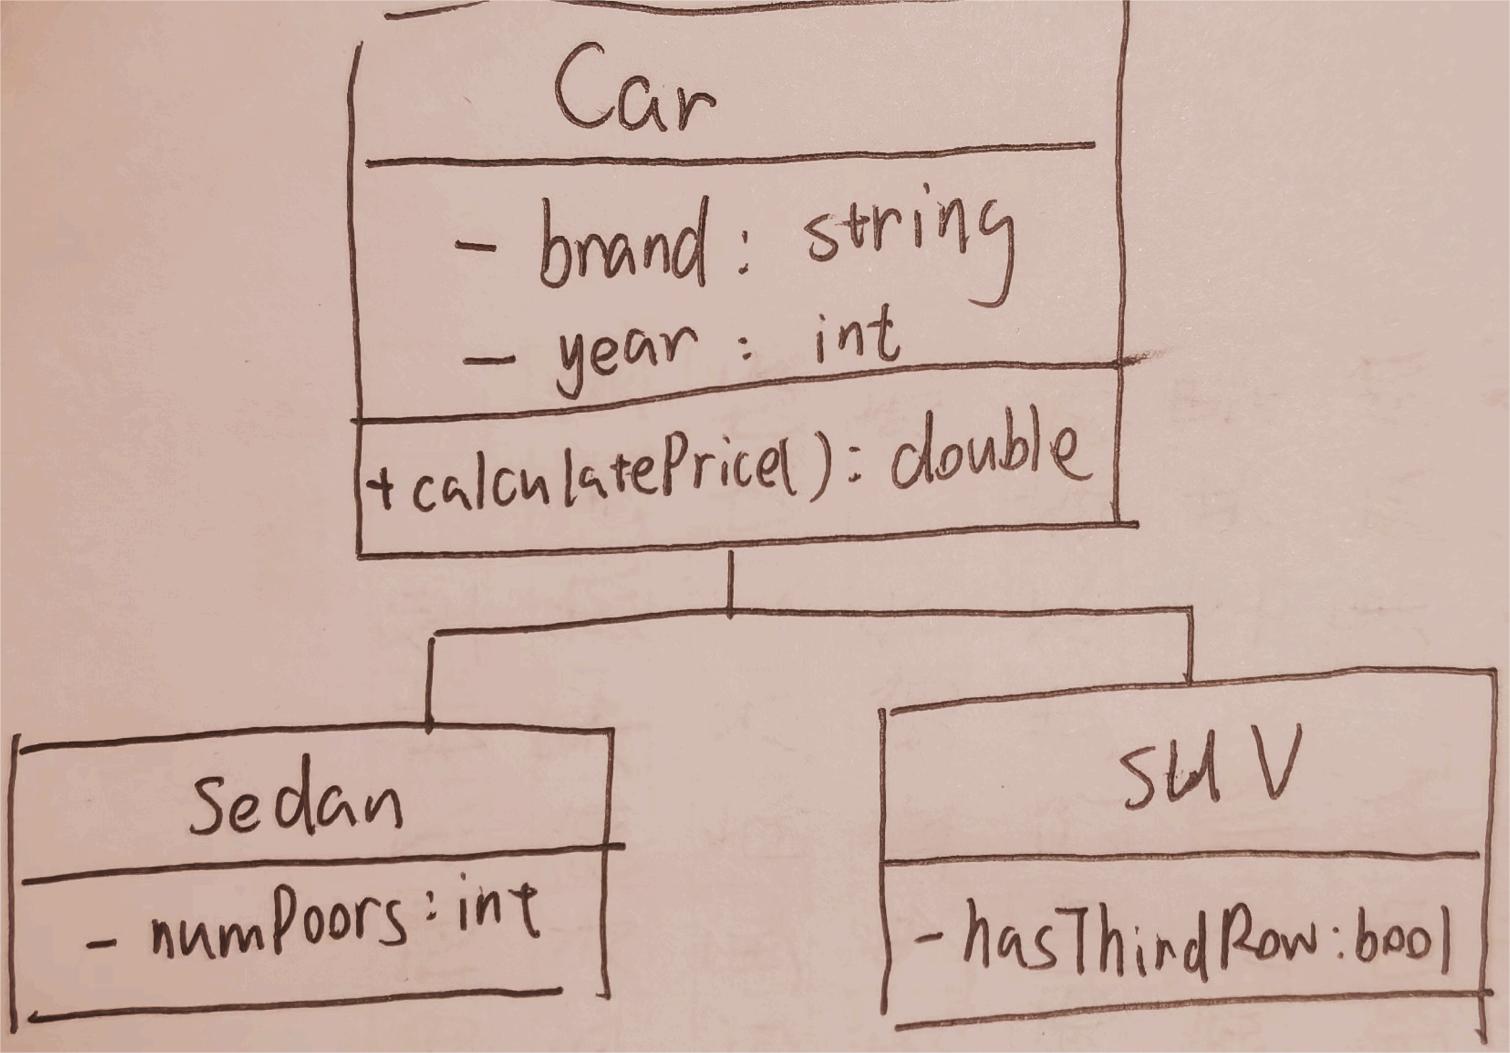 Car
- brand: string
- year: int
+calculatePrice(): double
Sedan
- numDoors: int
SUV
- hasThirdRow: bool